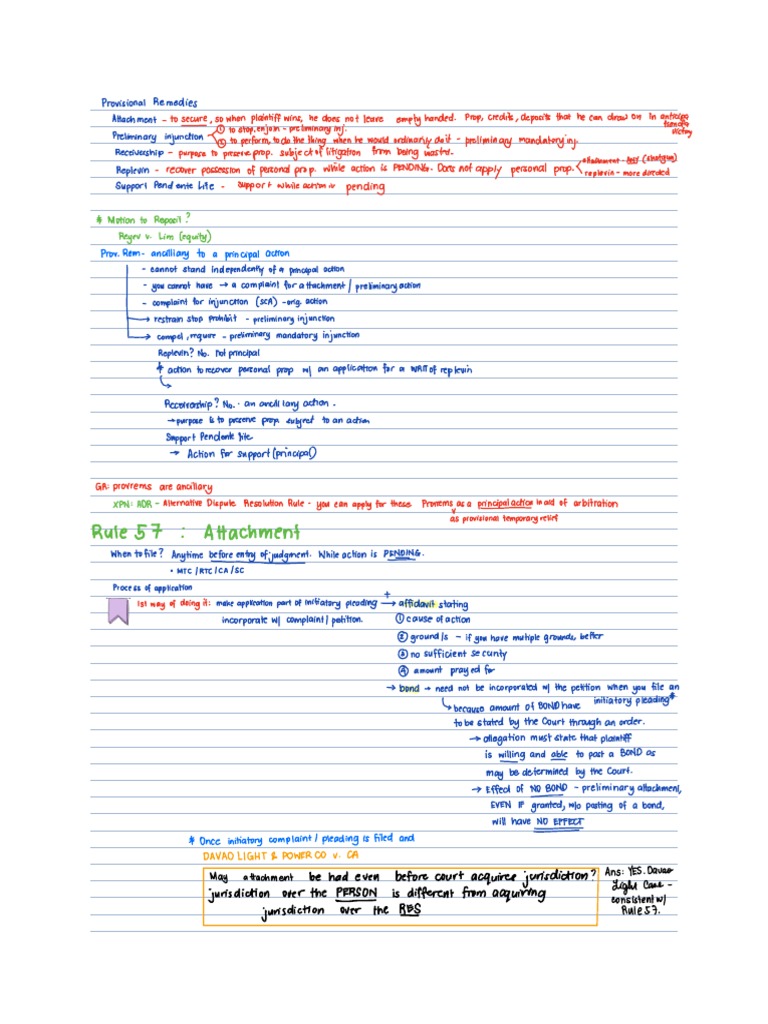 Provisional Remedies
Attachment - to secure, so when plaintiff wins, he does not leave empty handed. Prop, credits, deposits that he can draw on in anticipa
victory
Preliminary injunction ① to stop, enjoin - preliminary inj.
② to perform, to do the thing when he would ordinarily do it - preliminary mandatory inj.
Receivership - purpose to preserve prop. subject of litigation from being wasted.
Replevin - recover possession of personal prop. while action is PENDING. Does not apply personal prop.
attachment - (shotgun)
replevin - more directed
Support Pendente Lite - support while action is pending
* Motion to Deposit?
Reyes v. Lim (equity)
Prov. Rem - ancilliary to a principal action
- cannot stand independently of a principal action
- you cannot have → a complaint for attachment / preliminary action
- complaint for injunction (SCA) - orig. action
→ restrain stop prohibit - preliminary injunction
→ compel, require - preliminary mandatory injunction
Replevin? No. not principal
* action to recover personal prop w/ an application for a WRIT of replevin
Receivership? No. - an ancillary action.
→ purpose is to preserve prop. subject to an action
Support Pendente lite
→ Action for support (principal)
GR: provrems are ancillary
XPN: ADR - Alternative Dispute Resolution Rule - you can apply for these Provrems as a principal action in aid of arbitration
as provisional temporary relief
Rule 57 : Attachment
When to file? Anytime before entry of judgment. While action is PENDING.
• MTC / RTC / CA / SC
Process of application
1st way of doing it: make application part of initiatory pleading → + affidavit stating
incorporate w/ complaint / petition.
① cause of action
② ground/s - if you have mutiple grounds, better
③ no sufficient security
④ amount prayed for
→ bond → need not be incorporated w/ the petition when you file an
initiatory pleading*
because amount of BOND have
to be stated by the Court through an order.
→ allegation must state that plaintiff
is willing and able to post a BOND as
may be determined by the Court.
→ Effect of NO BOND - preliminary attachment,
EVEN IF granted, w/o posting of a bond,
will have NO EFFECT
* Once initiatory complaint / pleading is filed and
DAVAO LIGHT & POWER CO v. CA
May attachment be had even before court acquires jurisdiction?
jurisdiction over the PERSON is different from acquiring
jurisdiction over the RES
Ans: YES. Davao
Light Case -
consistent w/
Rule 57.